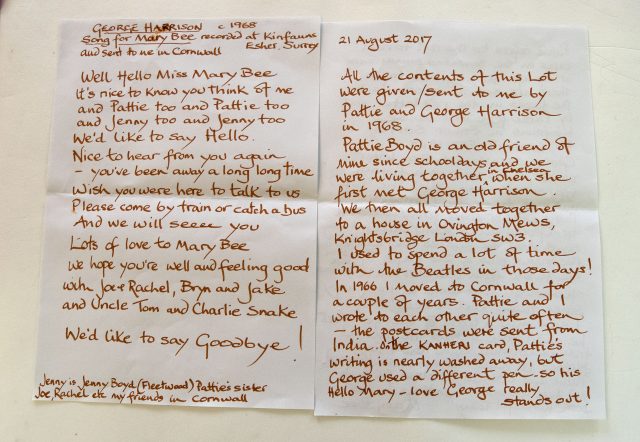 GEORGE HARRISON c 1968
Song for Mary Bee recorded at Kinfauns
Esher, Surrey
and sent to me in Cornwall
Well Hello Miss Mary Bee
It's nice to know you think of me
and Pattie too and Pattie too
and Jenny too and Jenny too
We'd like to say Hello.
Nice to hear from you again
- you've been away a long long time
Wish you were here to talk to us
Please come by train or catch a bus
And we will seeee you
Lots of love to Mary Bee
we hope you're well and feeling good
with Joe & Rachel, Bryn and Jake
and Uncle Tom and Charlie Snake
We'd like to say Goodbye!
Jenny is Jenny Boyd (Fleetwood) Pattie's sister
Joe, Rachel etc my friends in Cornwall
21 August 2017
All the contents of this Lot
were given/sent to me by
Pattie and George Harrison
in 1968.
Pattie Boyd is an old friend of
mine since schooldays and we
were living together, in Chelsea when she
first met George Harrison.
We then all moved together
to a house in Ovington Mews,
Knightsbridge London SW3.
I used to spend a lot of time
with the Beatles in those days!
In 1966 I moved to Cornwall for
a couple of years. Pattie and I
wrote to each other quite often
- the postcards were sent from
India. On the KANHERI card, Pattie's
writing is nearly washed away, but
George used a different pen - so his
Hello Mary - love George really
stands out!